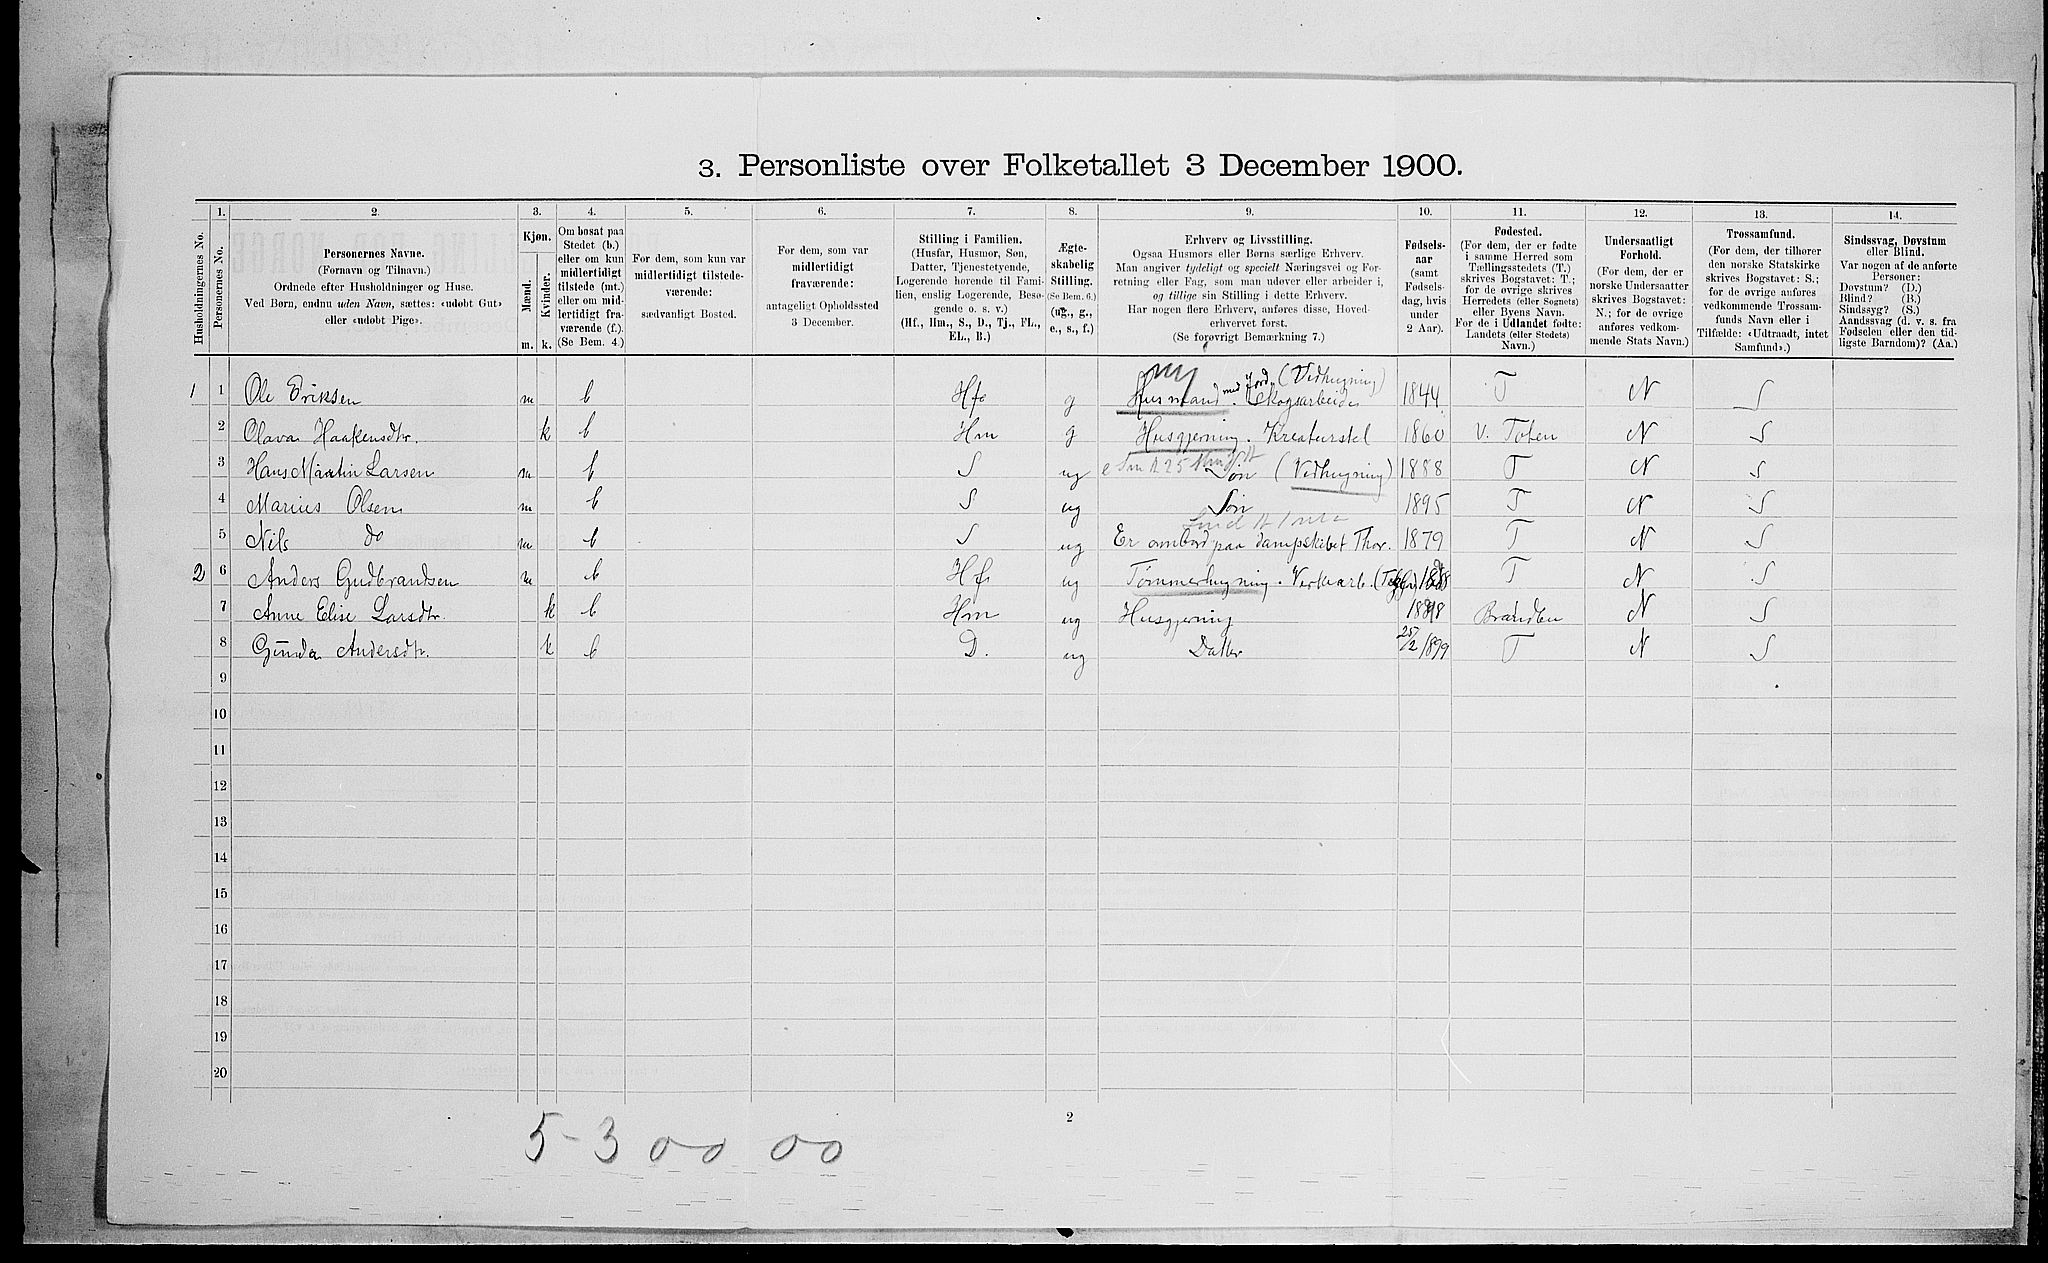 3. Personliste over Folketallet 3 December 1900.
1. 2. 3. 4. 5. 6. 7. 8. 9. 10. 11. 12. 13. 14.
Husholdningernes No.
Personernes No.
Personernes Navne.
(Fornavn og Tilnavn.)
Ordnede efter Husholdninger og Huse.
Ved Børn, endnu uden Navn, sættes: «udøbt Gut»
eller «udøbt Pige».
Kjøn.
Mænd.
Kvinder.
m. k.
Om bosat paa
Stedet (b.)
eller om kun
midlertidigt
tilstede (mt.)
eller om mid-
lertidigt fra-
værende (f.).
(Se Bem. 4.)
For dem, som kun var
midlertidigt tilstede-
værende:
sædvanligt Bosted.
For dem, som var
midlertidigt
fraværende:
antageligt Opholdssted
3 December.
Stilling i Familien.
(Husfar, Husmor, Søn,
Datter, Tjenestetyende,
Logerende hørende til Fami-
lien, enslig Logerende, Besø-
gende o. s. v.)
(Hf., Hm., S., D., Tj., FL.,
EL., B.)
Ægte-
skabelig
Stilling.
(Se Bem. 6.)
(ug., g.,
e., s., f.)
Erhverv og Livsstilling.
Ogsaa Husmors eller Børns særlige Erhverv.
Man angiver tydeligt og specielt Næringsvei og For-
retning eller Fag, som man udøver eller arbeider i,
og tillige sin Stilling i dette Erhverv.
Har nogen flere Erhverv, anføres disse, Hoved-
erhvervet først.
(Se forøvrigt Bemærkning 7.)
Fødsels-
aar
(samt
Fødsels-
dag, hvis
under
2 Aar).
Fødested.
(For dem, der er fødte
i samme Herred som
Tællingsstedets (T.)
skrives Bogstavet: T.;
for de øvrige skrives
Herredets (eller Sognets)
eller Byens Navn.
For de i Udlandet fødte:
Landets (eller Stedets)
Navn.)
Undersaatligt
Forhold.
(For dem, der er
norske Undersaatter
skrives Bogstavet:
N.; for de øvrige
anføres vedkom-
mende Stats Navn.)
Trossamfund.
(For dem, der tilhører
den norske Statskirke
skrives Bogstavet: S.;
for de øvrige anføres
vedkommende Trossam-
funds Navn eller i
Tilfælde: «Udtraadt, intet
Samfund».)
Sindssvag, Døvstum
eller Blind.
Var nogen af de anførte
Personer:
Døvstum? (D.)
Blind? (B.)
Sindssyg? (S.)
Aandssvag (d. v. s. fra
Fødselen eller den tid-
ligste Barndom)? (Aa.)
1 1 Ole Eriksen m b Hf g Husmand med Jord. (Vedhugning) Skogsarbeide 1844 T N S
2 Olava Haakensdtr. k b Hm g Husgjerning. Kreaturstel 1860 V. Toten N S
3 Hans Martin Larsen m b S ug Søn (Vedhugning) 1888 T N S
4 Marius Olsen m b S ug Søn 1895 T N S
5 Nils do m b S ug Er ombord paa dampskibet Thor. 1879 T N S
2 6 Anders Gudbrandsen m b Hf ug Tømmerhugning. T N S
7 Anne Elise Larsdtr. k b Hm ug Husgjerning Brandbu N S
8 Gunda Andersdtr. k b D. ug Datter 25/2 1899 T N S
9
10
11
12
13
14
15
16
17
18
19
20
2
5 - 3 00 00